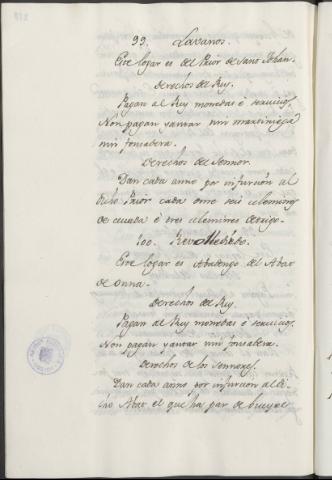 99. Lavanos.
Este logar es del Prior de Sant Johan.
Derechos del Rey.
Pagan al Rey monedas é servicios.
Non pagan yantar nin martiniega
nin fonsadera.
Derechos del Sennor.
Dan cada anno por infurción al
dicho Prior cada ome seis celemines
de cevada é tres celemines de trigo.
100.
Este logar es Abadengo del Abat
de Onna.
Derechos del Rey.
Pagan al Rey monedas é servicios.
Non pagan yantar nin fonsadera.
Derechos de los Sennores.
Dan cada anno por infurción al di-
cho Abat el que ha par de bueyes